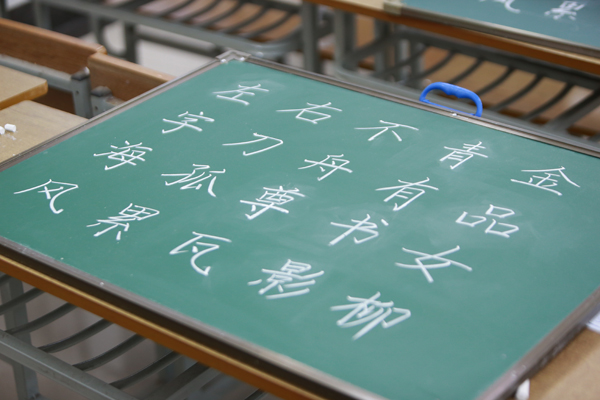 左右不青金
字刀舟有品
海孤尊书女
风累瓦影柳